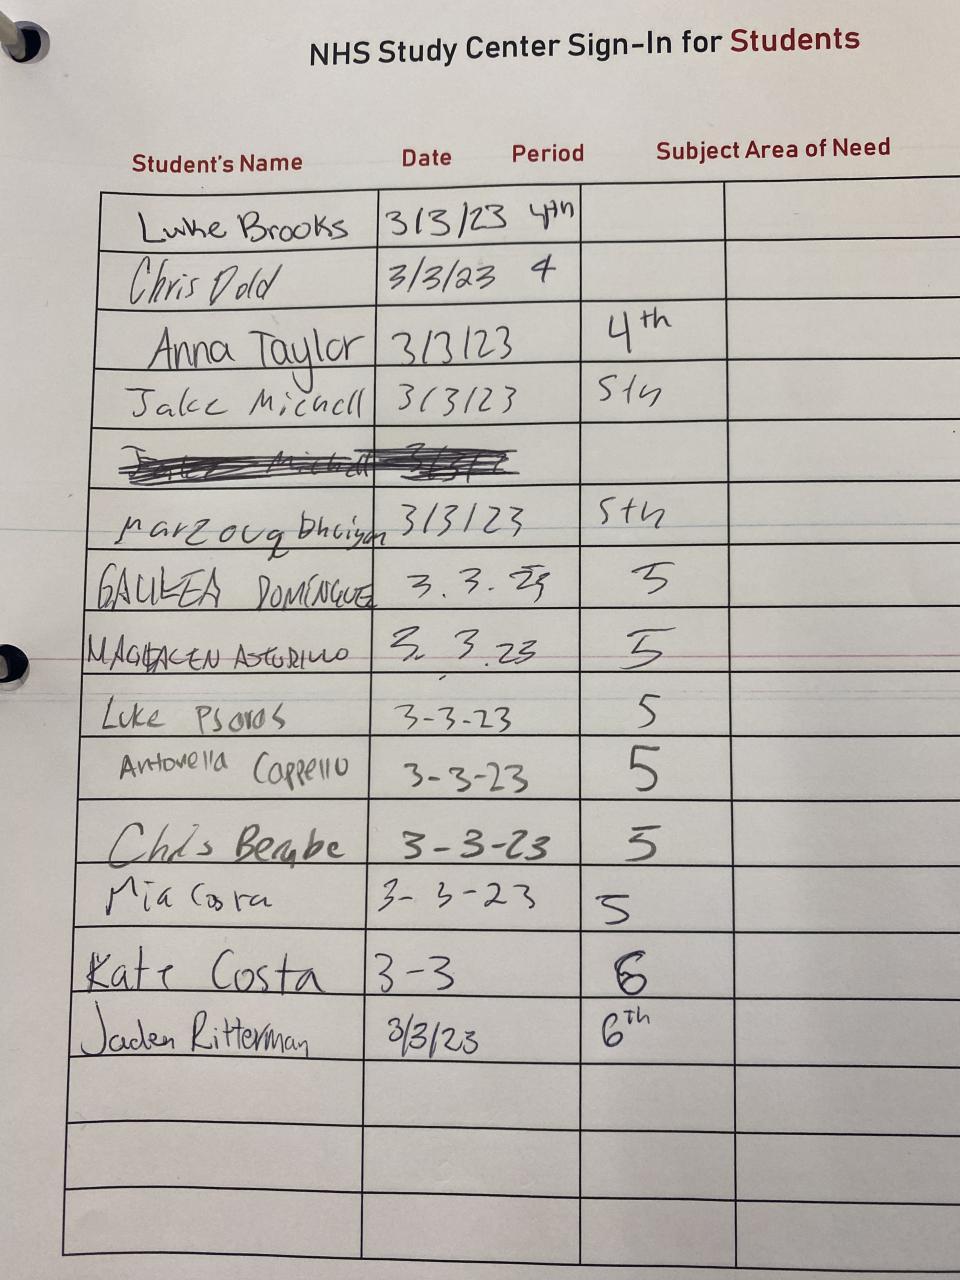 NHS Study Center Sign-In for Students
Student's Name Date Period Subject Area of Need
Luke Brooks 3/3/23 4th
Chris Dold 3/3/23 4
Anna Taylor 3/3/23 4th
Jake Michell 3/3/23 5th
3/3/23 5th
GALILEA DOMÍNGUEZ 3.3.23 5
ASTURILLO 3.3.23 5
Luke Psaros 3-3-23 5
Antonella Cappello 3-3-23 5
Chris Berube 3-3-23 5
Mia 3-3-23 5
Kate Costa 3-3 6
Jaden Ritterman 3/3/23 6th